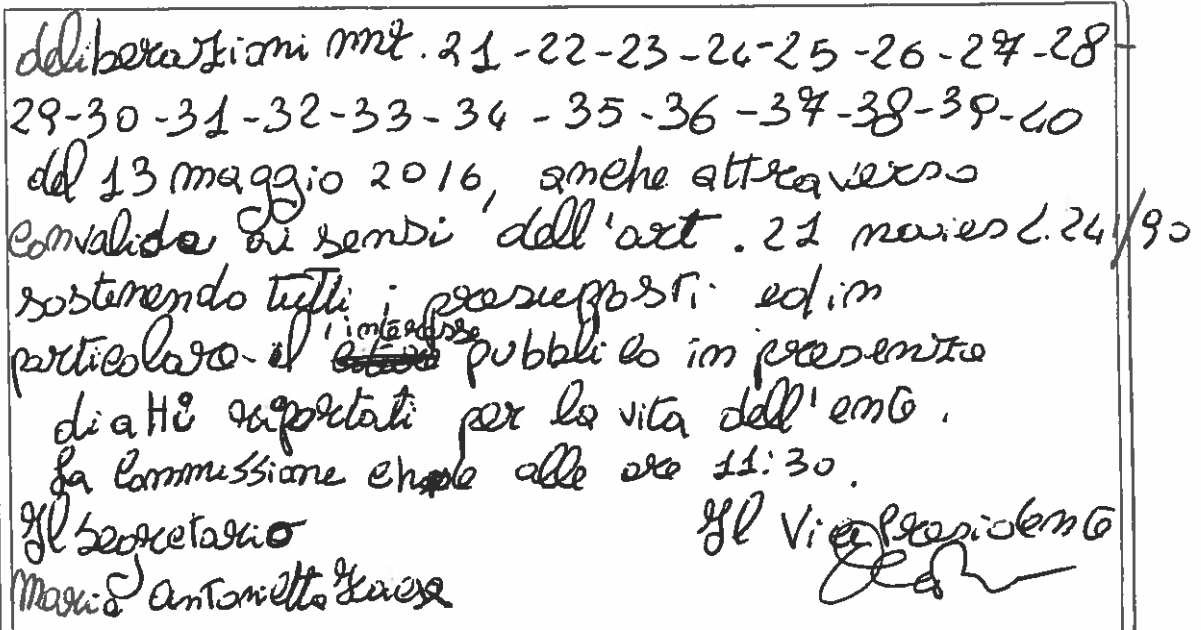 deliberazioni nnt. 21-22-23-24-25-26-27-28
29-30-31-32-33-34-35-36-37-38-39-40
del 13 maggio 2016, anche attraverso
convalida ai sensi dell'art. 21 novies L.241/90
sostenendo tutti i presupposti ed in
particolare il l'interesse pubblico in presenza
di atti riportati per la vita dell'ente.
La Commissione chiude alle ore 11:30.
Il Segretario Il Vice Presidente
Maria Antonietta